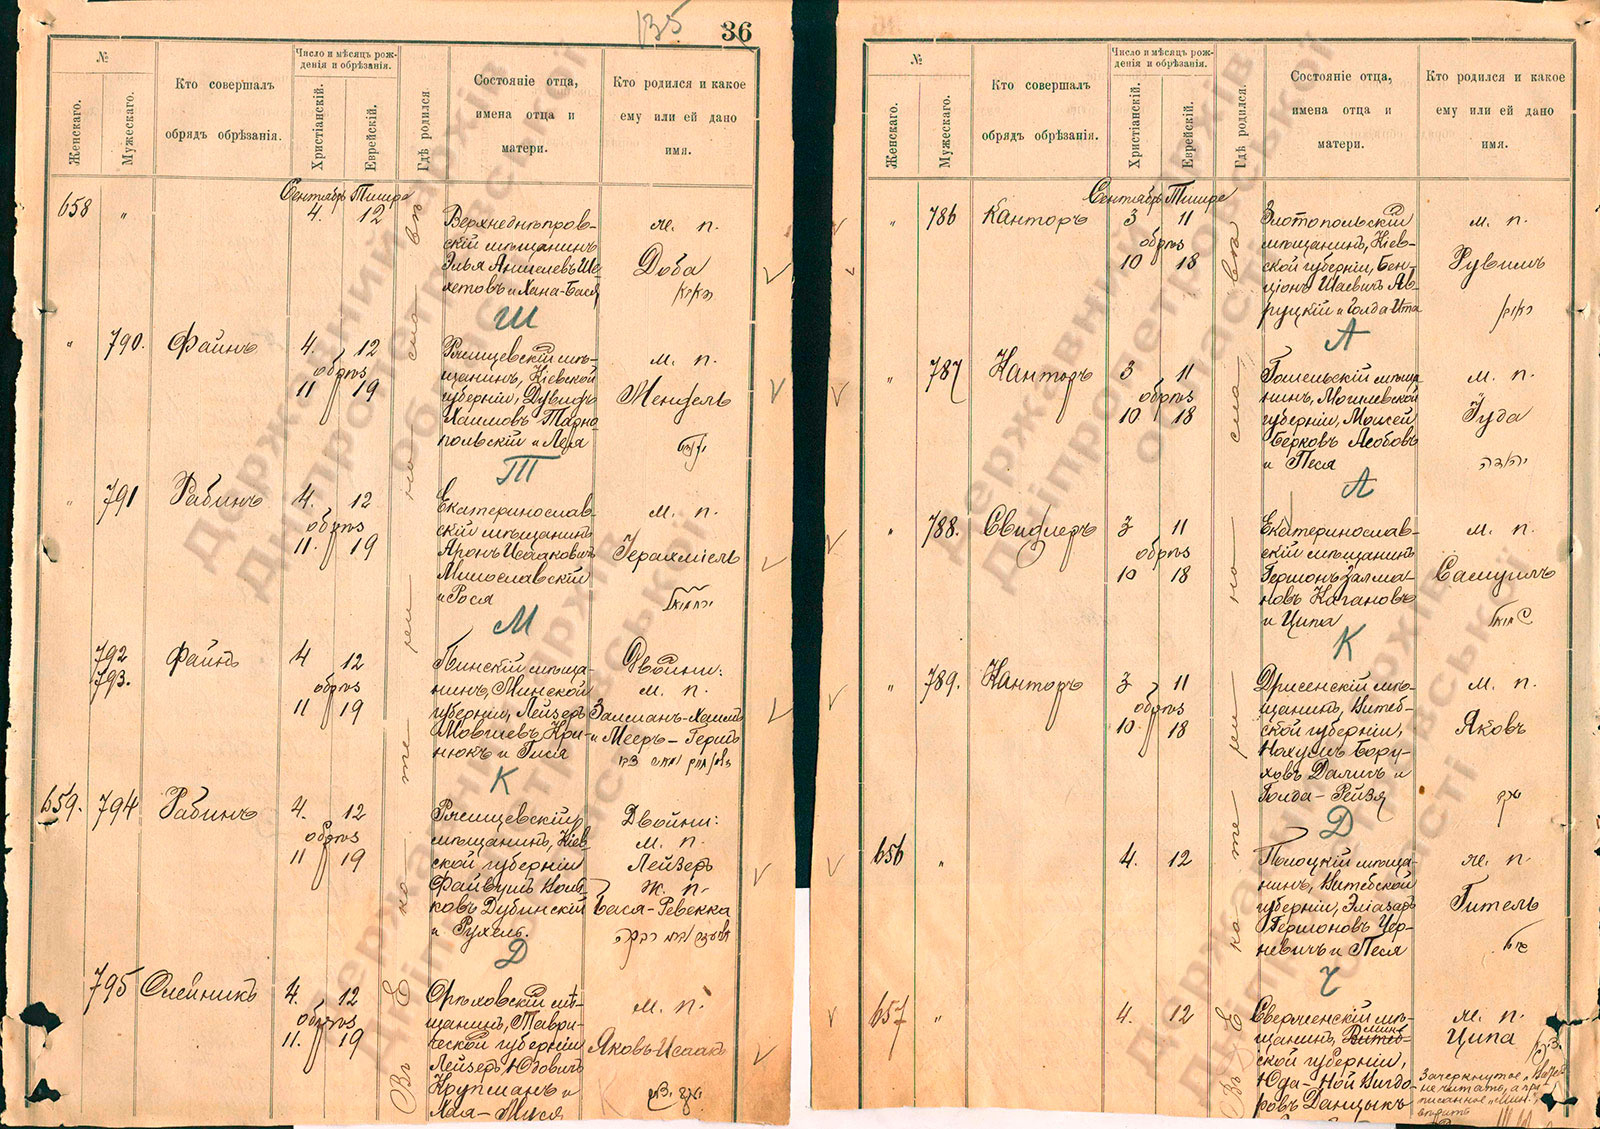 135
36
№
Женскаго.
Мужескаго.
Кто совершалъ
обрядъ обрѣзанія.
Число и мѣсяцъ рож-
денія и обрѣзанія.
Христіанскій.
Еврейскій.
Гдѣ родился
Состояніе отца,
имена отца и
матери.
Кто родился и какое
ему или ей дано
имя.
Сентябрь Тишре
658 " 4. 12
Верхнеднѣпров-
скій мѣщанинъ
ж. п.
Доба
Ш
" 790. Файнъ 4. 12
обрѣз
11 19
Ржищевскій мѣ-
щанинъ, Кіевской
губерніи, Дувидъ
Хаимовъ Тарно-
польскій и Лея
м. п.
Мендель
Т
" 791 Рабинъ 4. 12
обрѣз
11. 19
Екатеринослав-
скій мѣщанинъ
Аронъ Исааковичъ
Милославскій
и Рося
м. п.
Іерахміель
М
792
793. Файнъ 4 12
обрѣз
11 19
Пинскій мѣща-
нинъ, Минской
губерніи, Лейзеръ
Мовшевъ Кри-
нюкъ и Гися
Двойни:
м. п.
Залманъ-Хаимъ
и Мееръ-Гершъ
К
659. 794 Рабинъ 4. 12
обрѣз
11 19
Ржищевскій
мѣщанинъ, Кіев-
ской губерніи
Файвишъ Вольф-
ковъ Дубинскій
и Рухель.
Двойни:
м. п.
Лейзеръ
ж. п.
Бася-Ревекка
Д
795 Олейникъ 4. 12
обрѣз
11. 19
Орѣховскій мѣ-
щанинъ, Таври-
ческой губерніи
Лейзеръ Юдовичъ
Крупманъ и
Хая-Муся
м. п.
Яковъ-Исаакъ
Въ Екатеринославѣ
№
Женскаго.
Мужескаго.
Кто совершалъ
обрядъ обрѣзанія.
Число и мѣсяцъ рож-
денія и обрѣзанія.
Христіанскій.
Еврейскій.
Гдѣ родился.
Состояніе отца,
имена отца и
матери.
Кто родился и какое
ему или ей дано
имя.
Сентябрь Тишре
" 786 Канторъ 3 11
обрѣз
10 18
Златопольскій
мѣщанинъ, Кіев-
ской губерніи, Бен-
ціонъ Шаевичъ Ав-
руцкій и Голда-Ита
м. п.
Рувимъ
А
" 787 Канторъ 3 11
обрѣз
10 18
Гомельскій мѣща-
нинъ, Могилевской
губерніи, Мошей
Берковъ Асобовъ
и Песя
м. п.
Іуда
יהודה
А
" 788. Свидлеръ 3 11
обрѣз
10 18
Екатеринослав-
скій мѣщанинъ
Гершонъ Залма-
новъ Кагановъ
и Ципа
м. п.
Самуилъ
К
" 789. Канторъ 3 11
обрѣз
10. 18
Дрисенскій мѣ-
щанинъ, Витеб-
ской губерніи,
Нахумъ Бору-
ховъ Далич и
Голда-Рейзя
м. п.
Яковъ
יעקב
Д
656 " 4. 12
Полоцкій мѣща-
нинъ, Витебской
губерніи, Эліазаръ
Гершоновъ Чер-
невичъ и Песя
ж. п.
Гитель
Ч
657 " 4. 12
Сверженскій мѣ-
щанинъ, Витеб- Мин-
ской губерніи,
Юда-Ной Вигдо-
ровъ Данцыкъ
ж. п.
Ципа
Зачеркнутое „Витеб“
не читать, а при-
писанное „Мин.“,
вѣрить
Въ Екатеринославѣ
Державний архів
Дніпропетровської
області